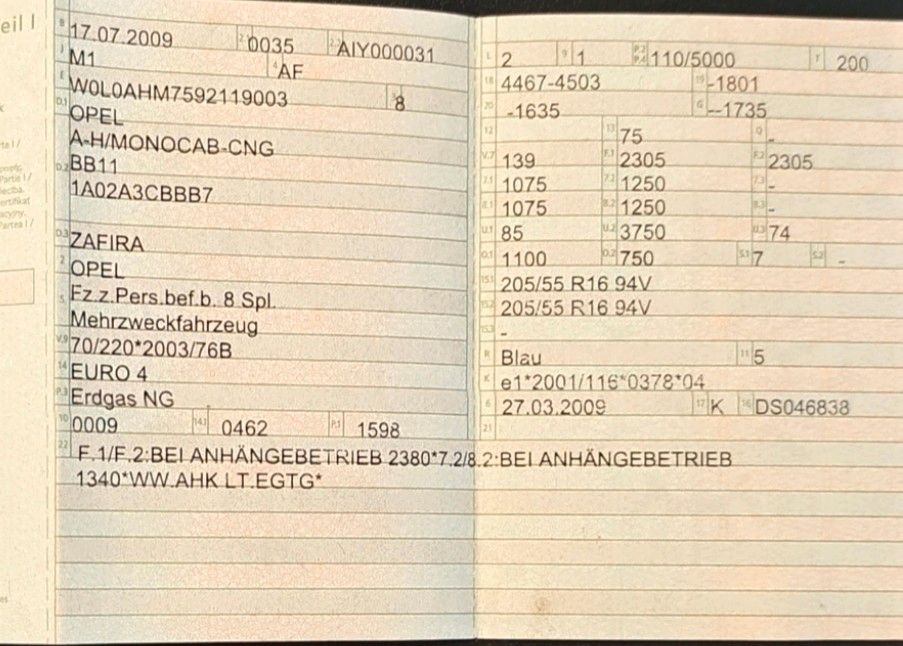 eil I
B 17.07.2009 2.1 0035 2.2 AIY000031
J M1 4 AF
E W0L0AHM7592119003 3 8
D.1 OPEL
A-H/MONOCAB-CNG
D.2 BB11
1A02A3CBBB7
D.3 ZAFIRA
2 OPEL
5 Fz.z.Pers.bef.b. 8 Spl.
Mehrzweckfahrzeug
V.9 70/220*2003/76B
14 EURO 4
P.3 Erdgas NG
10 0009 14.1 0462 P.1 1598
22 F.1/F.2:BEI ANHÄNGEBETRIEB 2380*7.2/8.2:BEI ANHÄNGEBETRIEB
1340*WW.AHK LT.EGTG*
L 2 9 1 P.2 P.4 110/5000 T 200
18 4467-4503 19 -1801
20 -1635 G --1735
12 13 75 Q -
V.7 139 F.1 2305 F.2 2305
7.1 1075 7.2 1250 7.3 -
8.1 1075 8.2 1250 8.3 -
U.1 85 U.2 3750 U.3 74
O.1 1100 O.2 750 S.1 7 S.2 -
15.1 205/55 R16 94V
15.2 205/55 R16 94V
15.3 -
R Blau 11 5
K e1*2001/116*0378*04
6 27.03.2009 17 K 16 DS046838
21